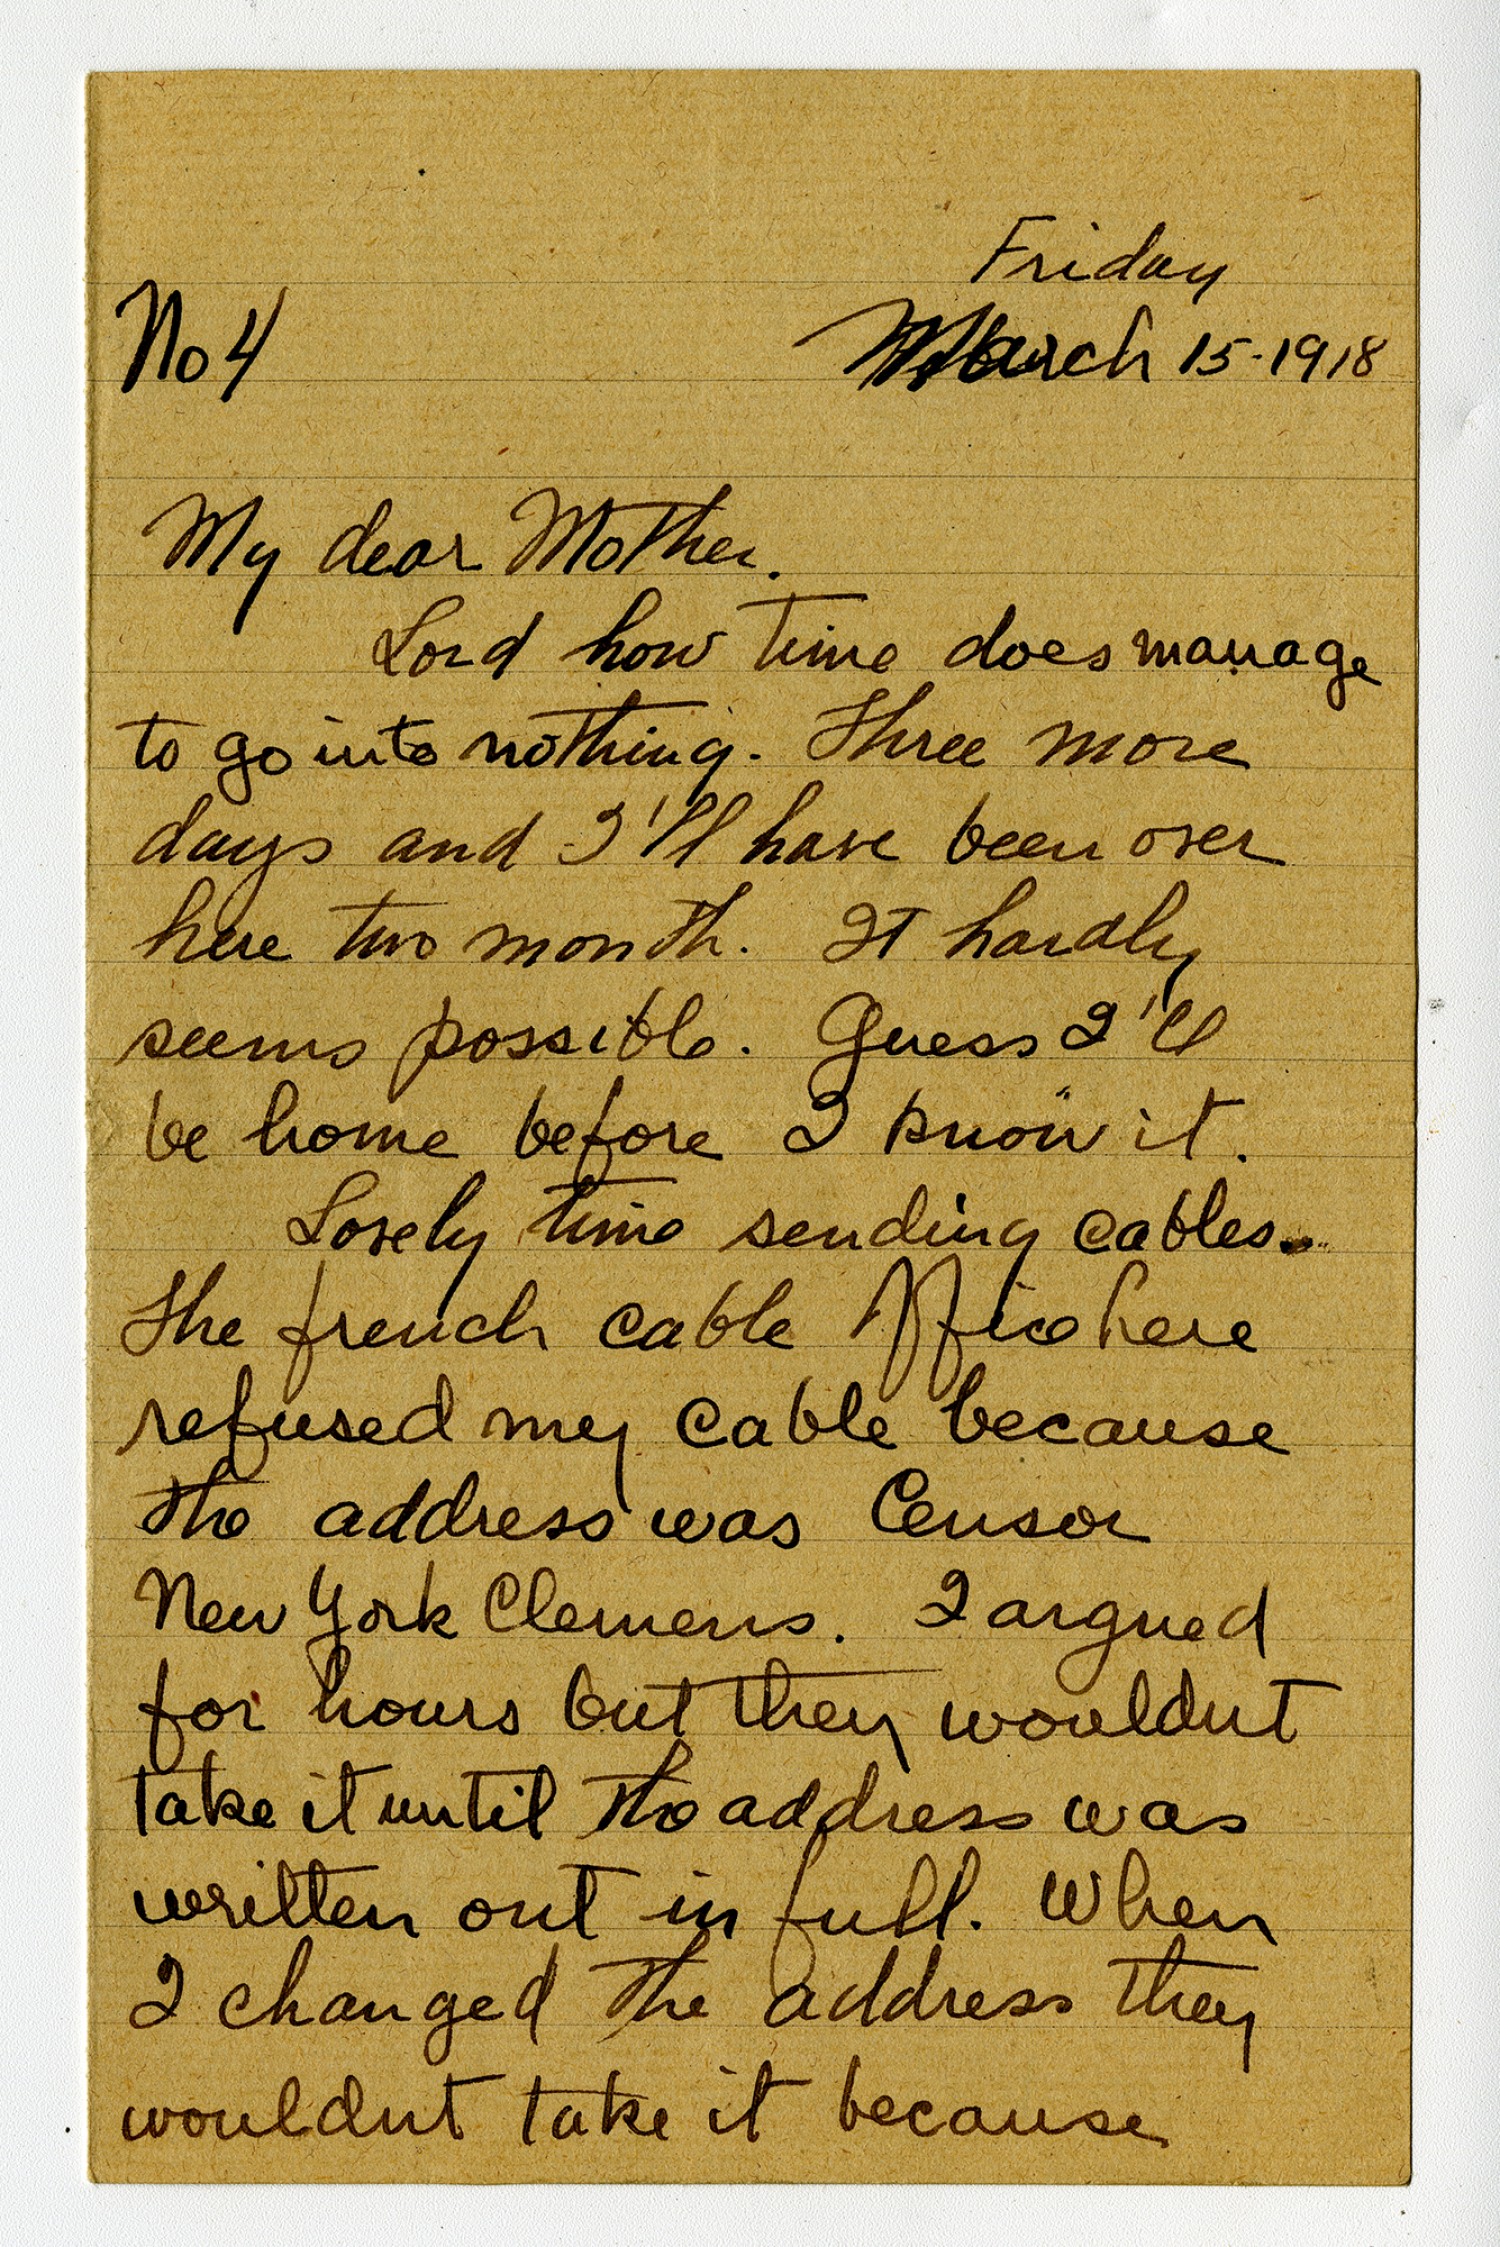 Friday
No 4 March 15-1918
My dear Mother.
Lord how time does manage
to go into nothing. Three more
days and I'll have been over
here two month. It hardly
seems possible. Guess I'll
be home before I know it.
Lovely time sending cables.
The french cable office here
refused my cable because
the address was Censor
New York Clemens. I argued
for hours but they wouldnt
take it until the address was
written out in full. When
I changed the address they
wouldnt take it because